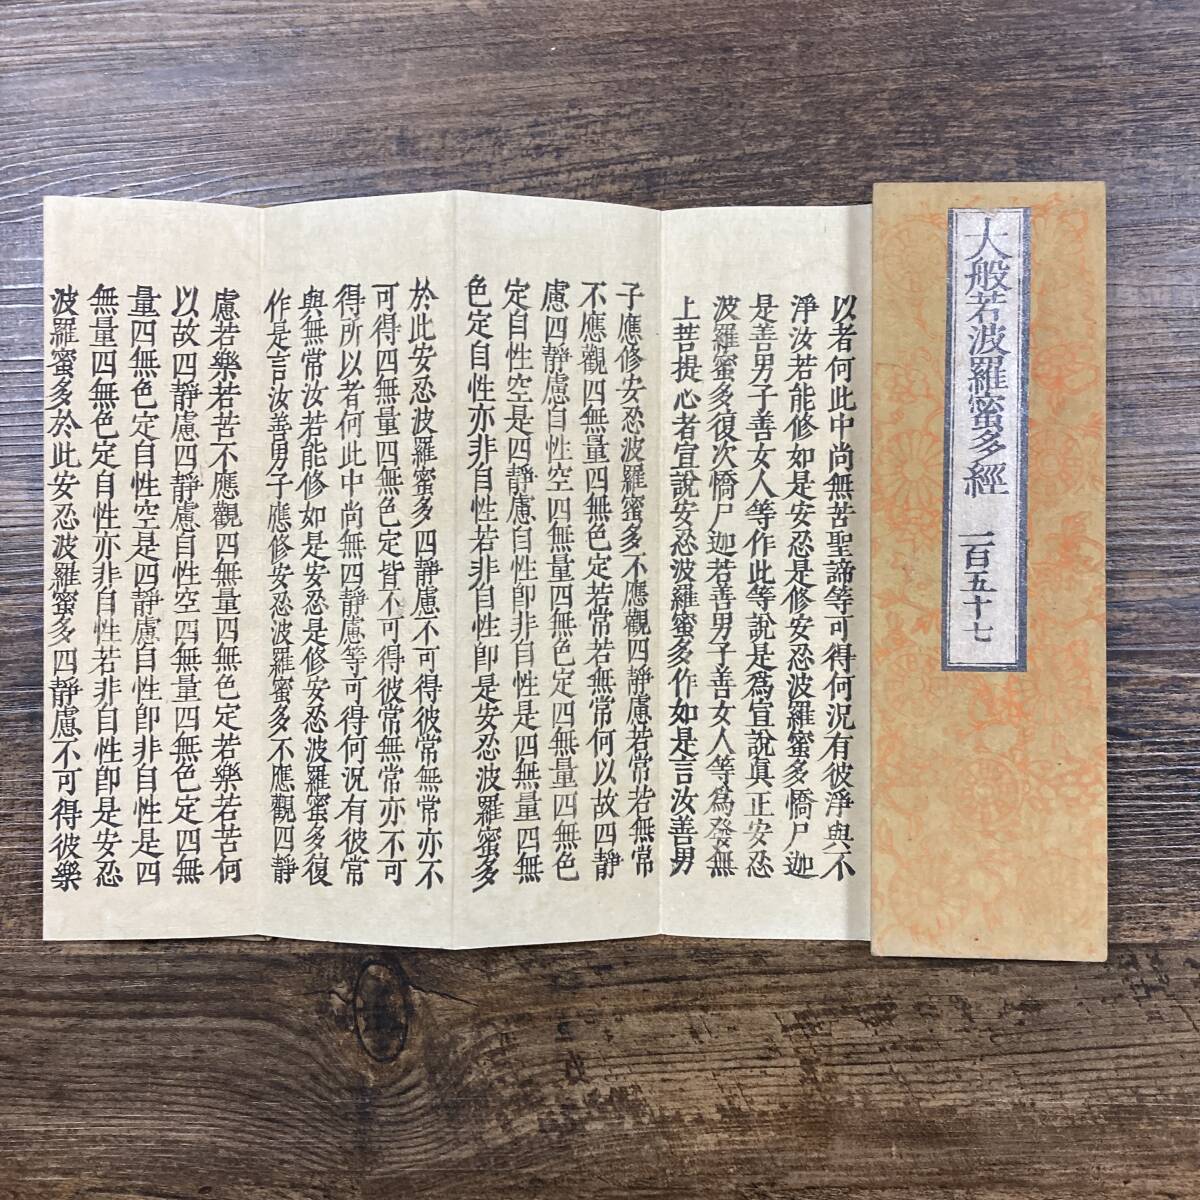 大般若波羅蜜多經 一百五十七
以者何此中尚無苦聖諦等可得何況有彼淨與不
淨汝若能修如是安忍是修安忍波羅蜜多憍尸迦
是善男子善女人等作此等說是為宣說真正安忍
波羅蜜多復次憍尸迦若善男子善女人等為發無
上菩提心者宣說安忍波羅蜜多作如是言汝善男
子應修安忍波羅蜜多不應觀四靜慮若常若無常
不應觀四無量四無色定若常若無常何以故四靜
慮四靜慮自性空四無量四無色定四無量四無色
定自性空是四靜慮自性即非自性是四無量四無
色定自性亦非自性若非自性即是安忍波羅蜜多
於此安忍波羅蜜多四靜慮不可得彼常無常亦不
可得四無量四無色定皆不可得彼常無常亦不可
得所以者何此中尚無四靜慮等可得何況有彼常
與無常汝若能修如是安忍是修安忍波羅蜜多復
作是言汝善男子應修安忍波羅蜜多不應觀四靜
慮若樂若苦不應觀四無量四無色定若樂若苦何
以故四靜慮四靜慮自性空四無量四無色定四無
量四無色定自性空是四靜慮自性即非自性是四
無量四無色定自性亦非自性若非自性即是安忍
波羅蜜多於此安忍波羅蜜多四靜慮不可得彼樂